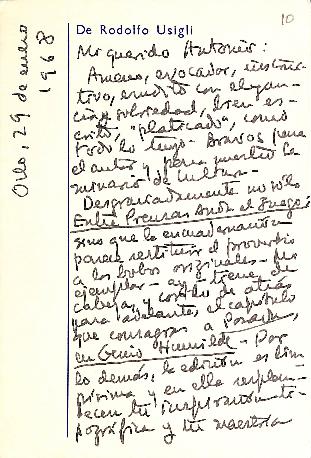 10
De Rodolfo Usigli
Oslo, 29 de enero
1968
Mi querido Antonio:
Ameno, evocador, instruc-
tivo, erudito con elegan-
cia y sobriedad, bien es-
crito, "platicado", como
todo lo tuyo. Bravos para
el autor y para nuestro Se-
minario de Cultura.
Desgraciadamente no sólo
Entre Prensas Anda el Juego,
sino que la encuadernación
parece restituir el proverbio
a los lobos originales. Mi
ejemplar - ay! tiene de
cabeza, y corrido de atrás
para adelante, el capítulo
que consagras a Posada,
en Genio Humilde. Por
lo demás, la edición es lim-
písima y en ella resplan-
decen tu inspiración ti-
pográfica y tu maestría